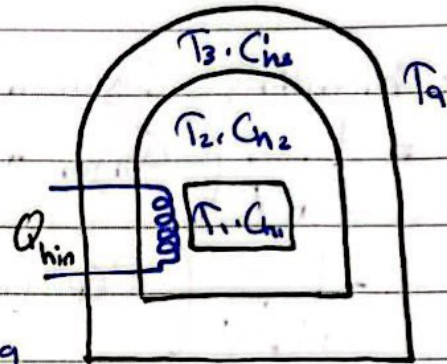 T3 . Ch3
Ta
T2 . Ch2
T1 . Ch1
Qhin